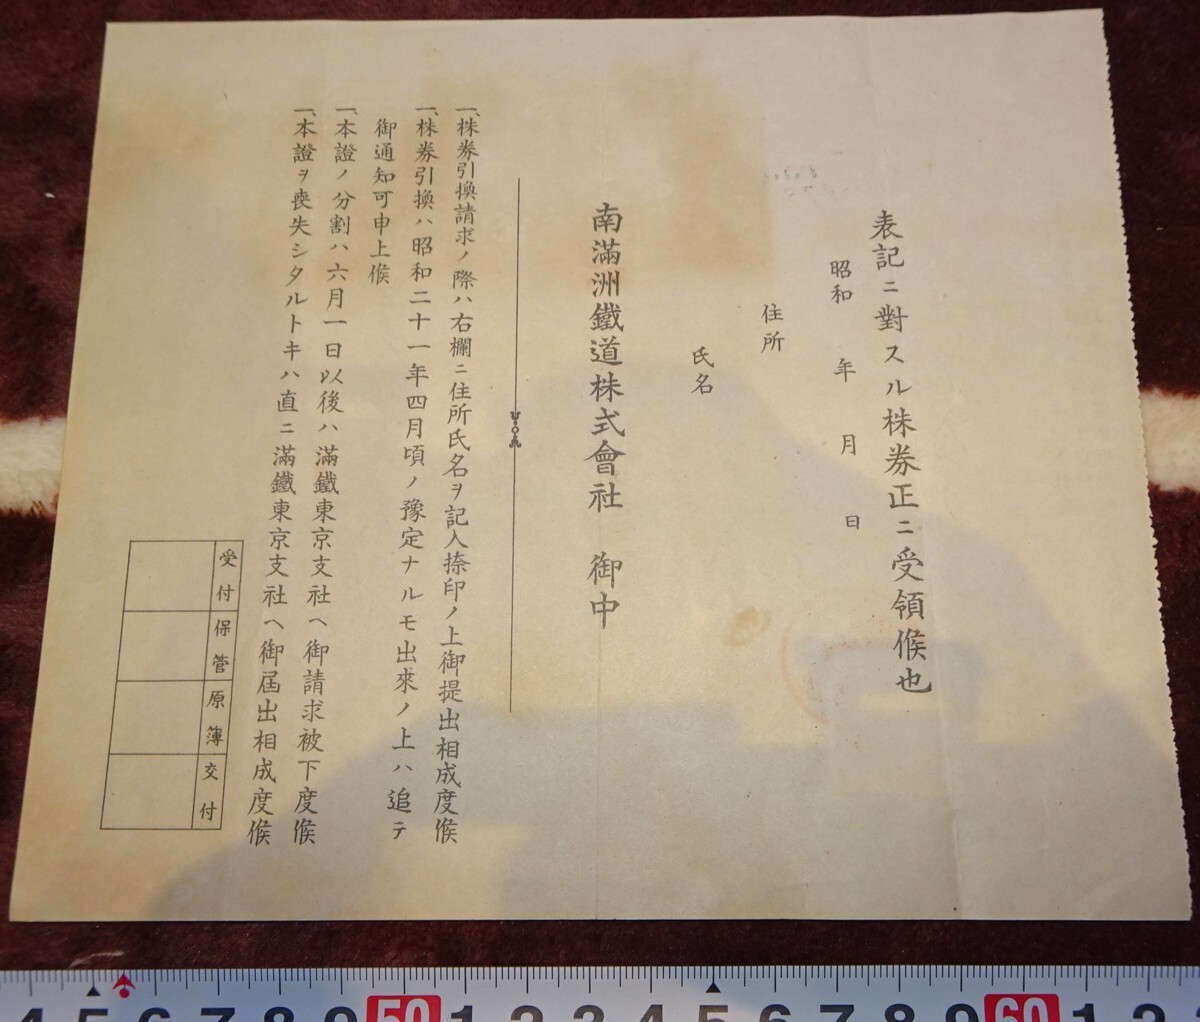 表記ニ對スル株券正ニ受領候也
昭和 年 月 日
住所
氏名
南滿洲鐵道株式會社 御中
一、株券引換請求ノ際ハ右欄ニ住所氏名ヲ記入捺印ノ上御提出相成度候
一、株券引換ハ昭和二十一年四月頃ノ豫定ナルモ出來ノ上ハ追テ
御通知可申上候
一、本證ノ分割ハ六月一日以後ハ滿鐵東京支社ヘ御請求被下度候
一、本證ヲ喪失シタルトキハ直ニ滿鐵東京支社ヘ御屆出相成度候
受付
保管
原簿
交付
4 5 6 7 8 9 50 1 2 3 4 5 6 7 8 9 60 1 2